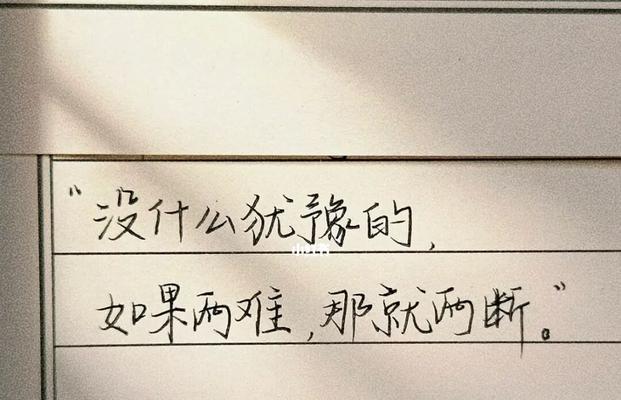 “没什么犹豫的,
如果两难,那就两断。”